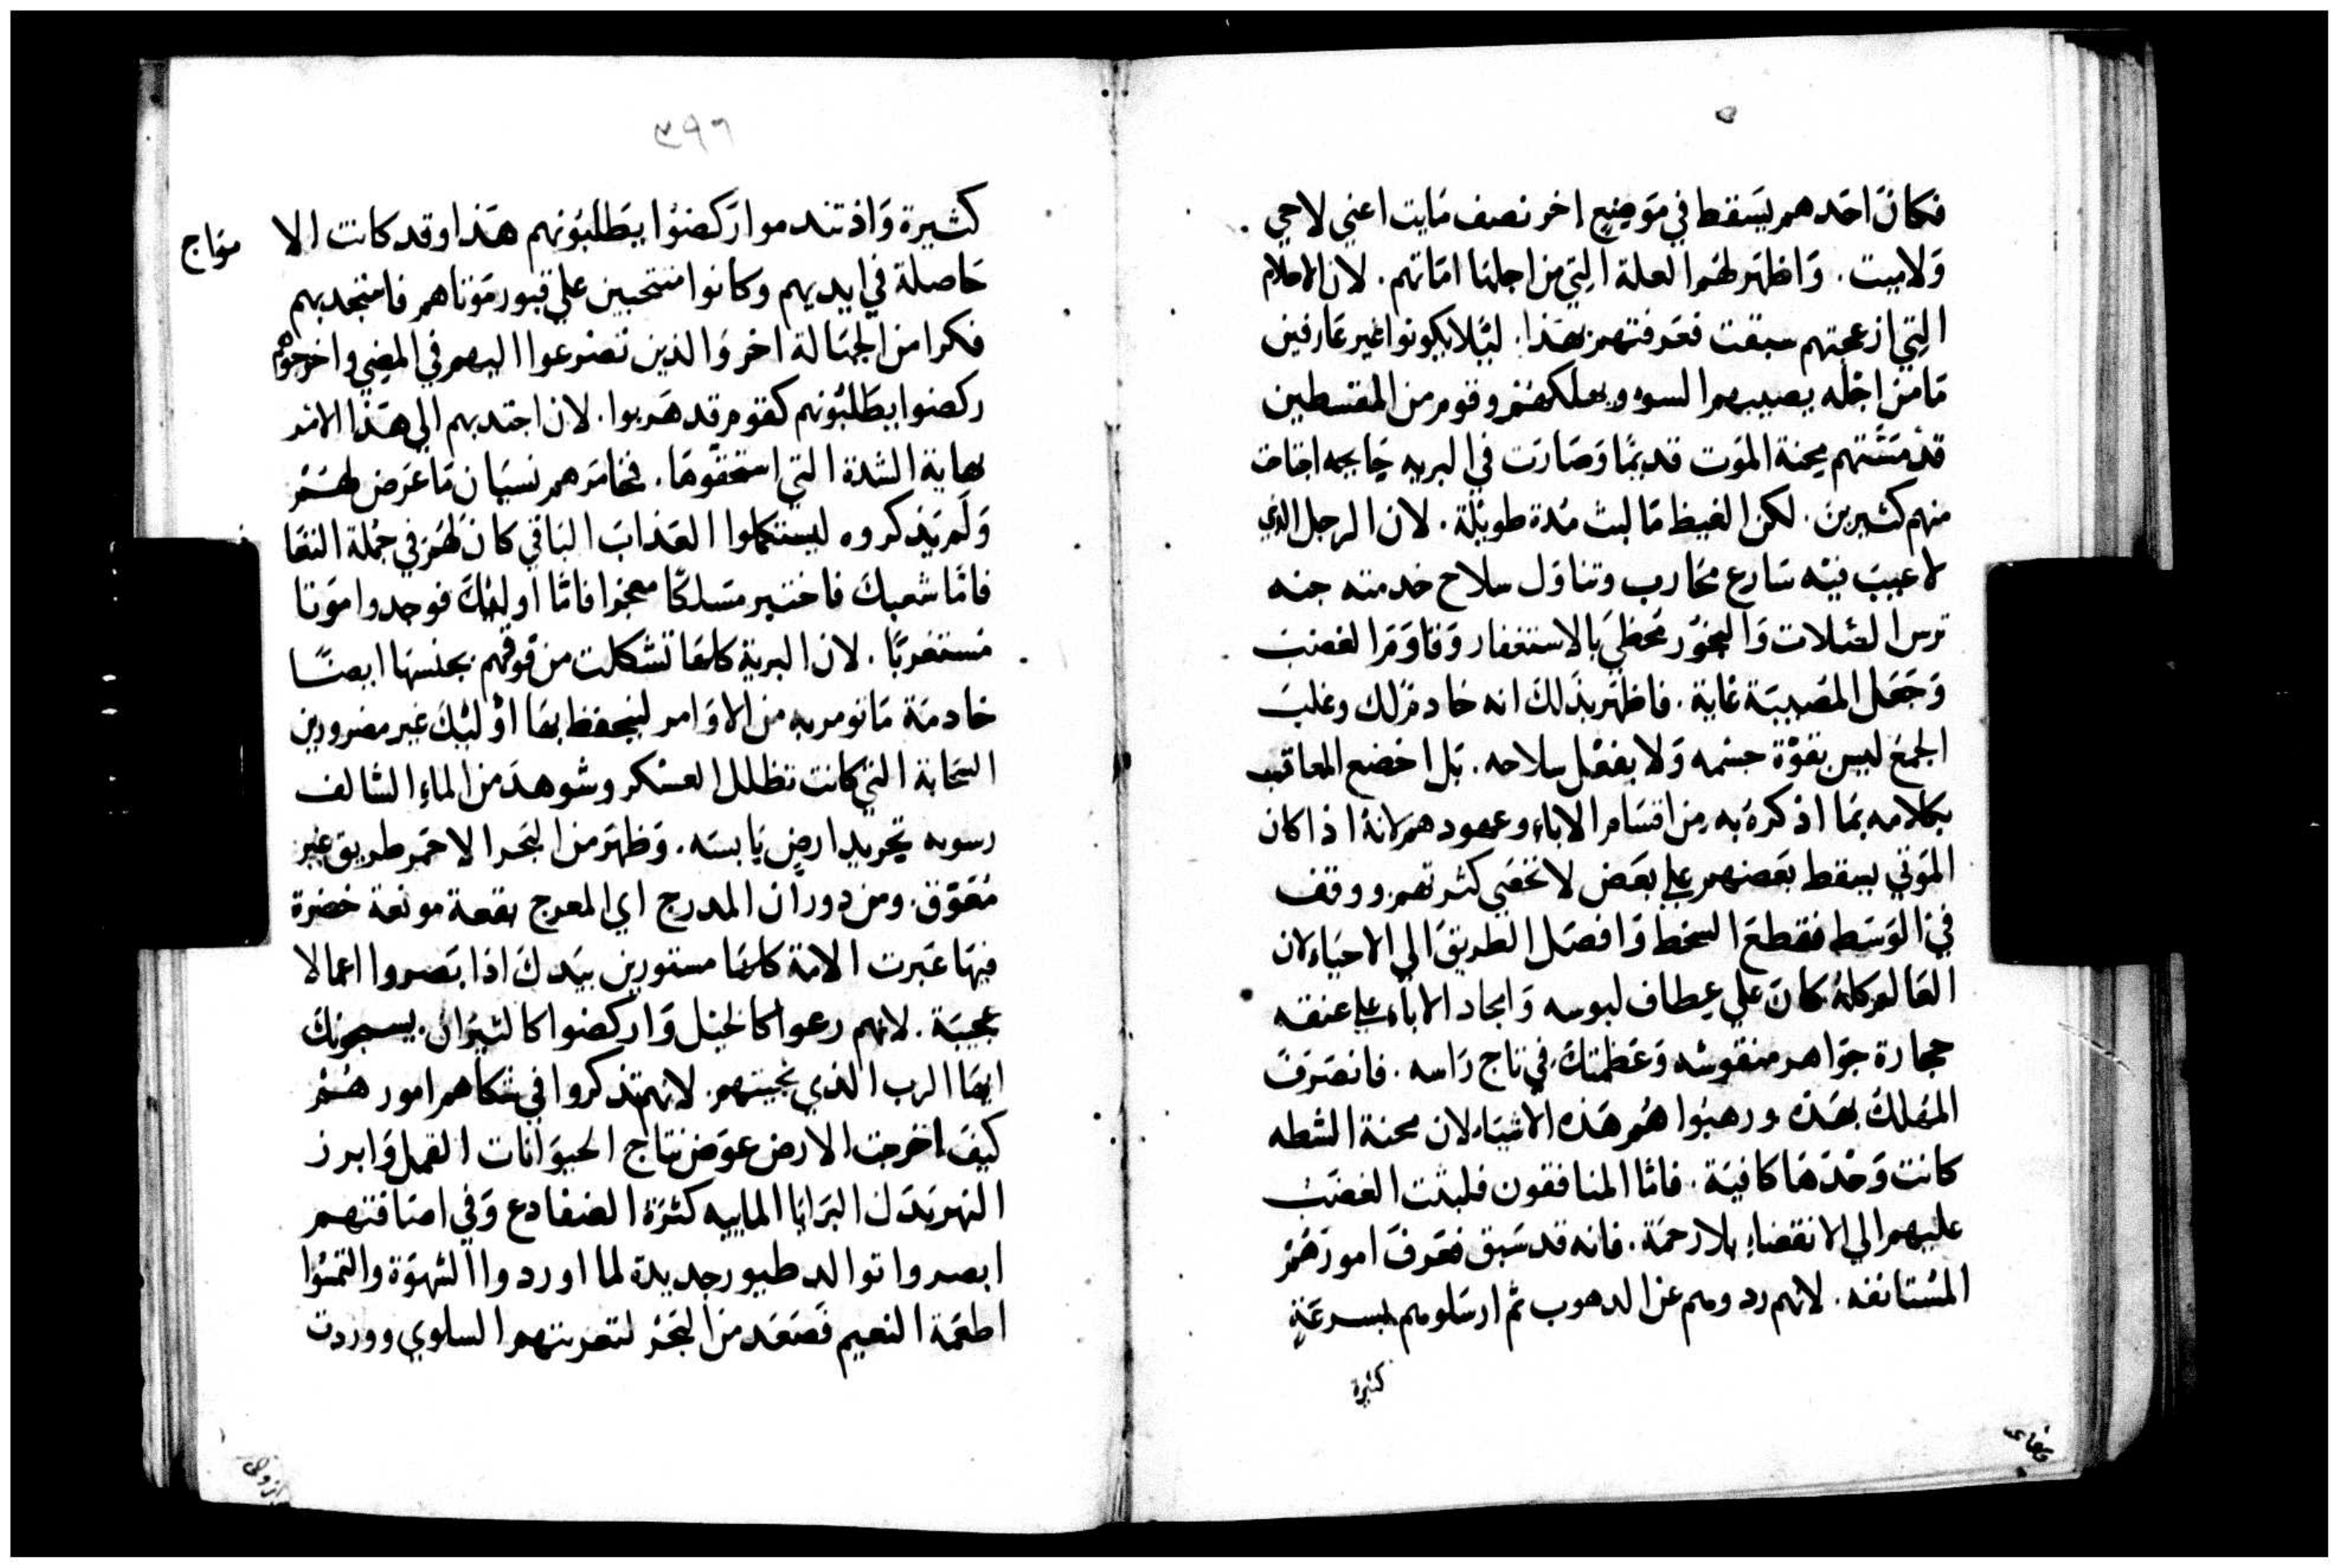 فكانَ احَدهم يسَقط في مَوضِعٍ اخر نصف مَايت اعني لا حي
وَلا ميت. وَاظهَر لهُم العلة التِي من اجلهَا امَاتهم. لان الاحلام
التِي ازعجتهم سبقت فعَرفتهم بهَذا. ليَلا يكونوا غير عَارفين
مَا من اجْله يصيبهم السوء ويهلكهُم وقوم من المقسطين
قد مَسَّتهم محنة الموَت قديمًا وَصَارَت في البريه جَايحه اخافت
منهم كثيرين. لكن الغيظ مَا لبث مُدة طويلة. لان الرجل الذي
لا عيبَ فيْه سَارع محَارب وتناوَل سلاح خدمته جنه
ترس الصَلات وَالبخوْر محَظيَ بَالاستغفار وَقاوَمَ الغضبَ
وَجَعَل المصَيبَة غاية. فاظهَر بذَلكَ انه خادمْ لك وغلبَ
الجمعَ ليسَ بقوْة جسْمه وَلا بفعْل سلاحه. بَل اخضع المعاقب
بكلامه بمَا اذكرَهُ به من اقسَام الاباء وعهودهم لانهُ اذا كان
الموَتي يسقط بعَضهم علي بعَض لا تحصَي كثرتهم ووقف
فيَ الوَسَط فقطعَ السخط وَافصَل الطريقَ الي الاحيَاء لان
العَالم كلهُ كانَ علي عِطاف لبوسه وَامجاد الاباء علي عنقه
حجارة جوَاهر منقوشه وَعَظمتكَ في تاج رَاسه. فانصَرَفَ
المهلكَ بهَذهْ ورهبَوا هُم هَذه الاشيَاء لان محنة السَخطه
كانت وَحْدَهَا كافيَة. فامَا المنافقون فلبثت الغضَبَ
عليهم الي الانقضاءِ بلا رحمَة. فانه قد سَبق فعَرفَ امورَهُمْ
المسْتانفه. لانهم ردومهم عن الدهوب ثم ارسَلومهم بسرعَةٍ
كثيرة
٣٩٦
كثيرة وَاذ تندموا ارَكضوْا يطَلبُونهم هَذا وقد كانت الا
حَاصلة في ايديهم وكانوا منتحبين علي قبور مَوتاهم فامتجد بهم
فكرا من الجهَالة اخر وَالذين تضرعوا اليهم في المضي واخرجوهم
ركضوا يطَلبُونهم كقوم قد هَربوا. لان اجتدبهم الي هَذا الامر
بهاية الشدة التي استحَقوْهَا. فخامَرهم نسيَان مَا عَرَض لهَمُ
وَلَم يَذكروه ليستكملوا العَذابَ البَاقي كانَ لهُم في جمُلة النقا
فامَا شعبكَ فاختبر مسَلكًا معجزا فامَا اوليْكَ فوجدوا موَتا
مستغرَبًا. لان البرية كلهَا تشكلت من فوَقهم بجنسهَا ايضًا
خادمَة مَا تومر به من الاوَامر ليَحفظ بهَا اوْليْكَ غير مضرورين
السَحابة التيَ كانت تظلل العسْكر وشوهدَ من الماءِ السَالف
رسوبه تجريد ارضٍ يَابسَه. وَظهَر من البَحر الاحمَر طريق غير
مُعَوّق. ومن دورَان المدرج اي المعرج بقعة مونعة خضرة
فيهَا عَبَرت الامة كلهَا مستورين بيَدكَ اذا بَصروا اعمالا
عجيبَة. لانهم رعوا كالخيَل وَاركضوا كالثيَرانْ. يسبحونكَ
ايهَا الرب الذي نجيتهم. لانهم تذكروا في سَكاهم امور هُمْ
كيفَ اخرجت الارض عوَض نتاج الحيوَانات القمل وَابرز
النهر بَدَل البَرَايا المابيه كثرَة الضفادع وَفي اصَافتهم
ابصروا توالد طيور جديدة لما اوردوا الشهوَة والتمسُوا
اطعمَة النعيم فَصَعَد منَ البَحَر لتعزيتهم السلوي ووردت